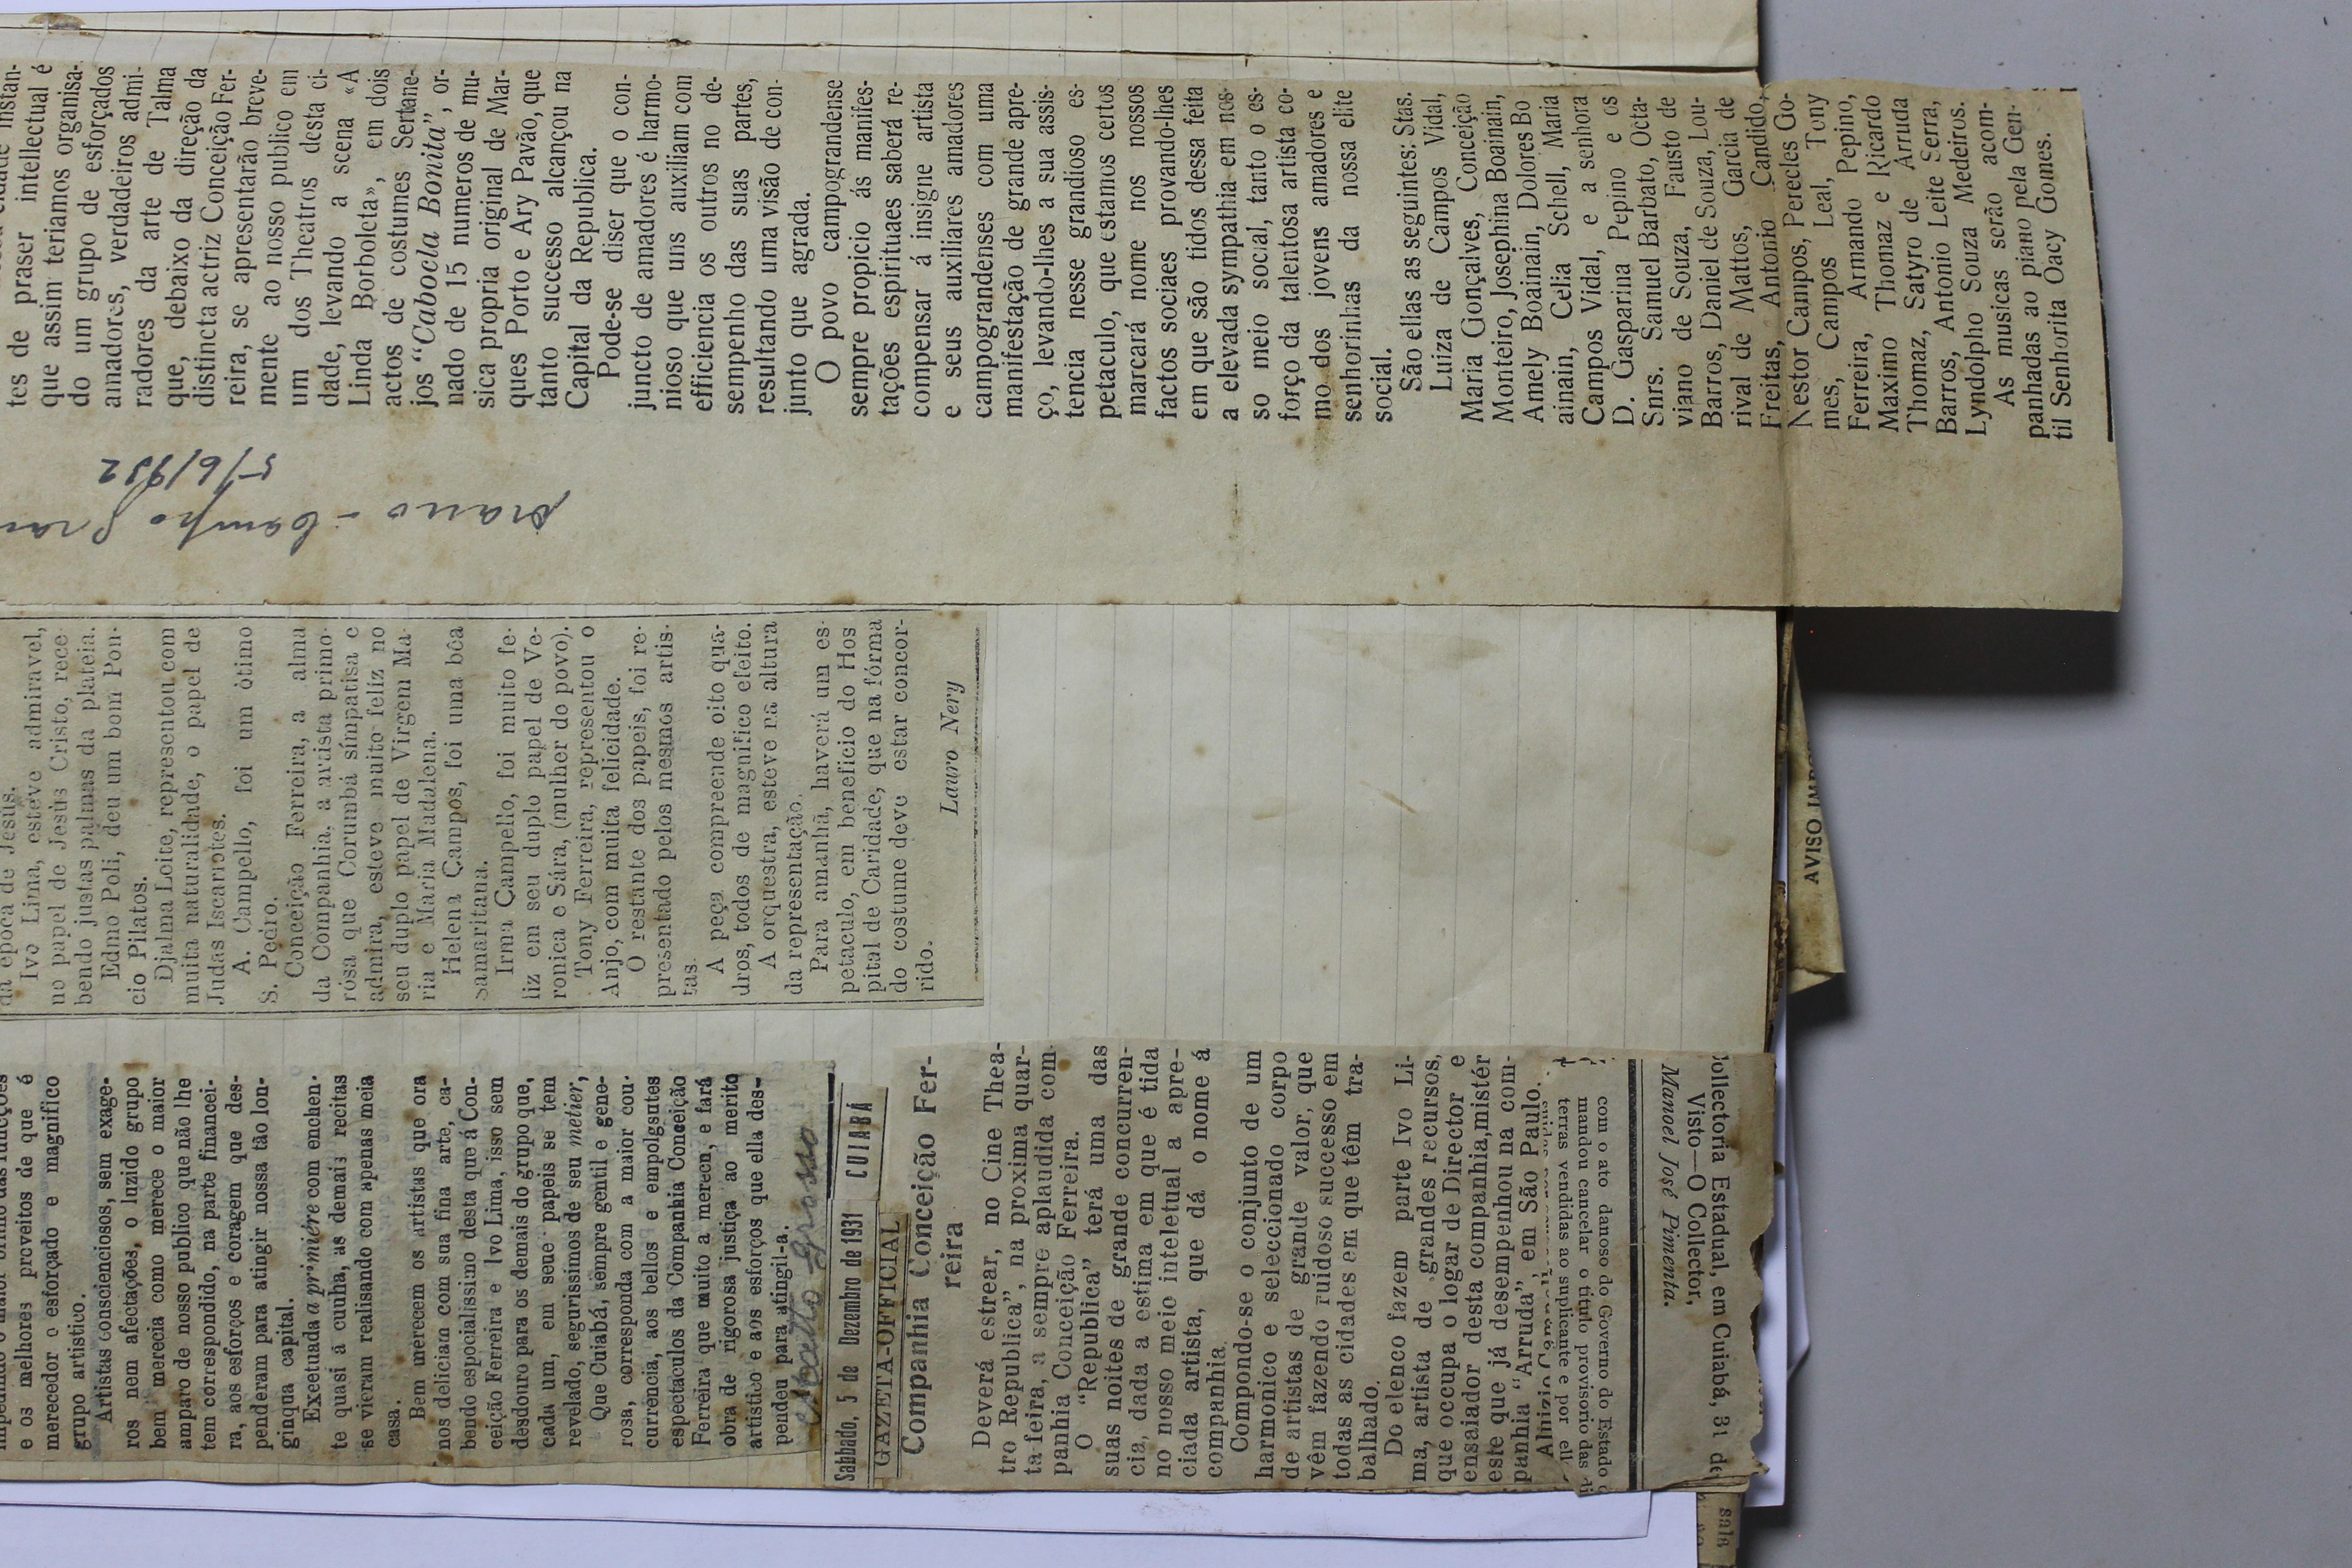 tes de praser intellectual é
que assim teriamos organisa-
do um grupo de esforçados
amadores, verdadeiros admi-
radores da arte de Talma
que, debaixo da direção da
distincta actriz Conceição Fer-
reira, se apresentarão breve-
mente ao nosso publico em
um dos Theatros desta ci-
dade, levando a scena «A
Linda Borboleta», em dois
actos de costumes Sertane-
jos “Cabocla Bonita”, or-
nado de 15 numeros de mu-
sica propria original de Mar-
ques Porto e Ary Pavão, que
tanto successo alcançou na
Capital da Republica.
Pode-se diser que o con-
juncto de amadores é harmo-
nioso que uns auxiliam com
efficiencia os outros no de-
sempenho das suas partes,
resultando uma visão de con-
junto que agrada.
O povo campograndense
sempre propicio ás manifes-
tações espirituaes saberá re-
compensar á insigne artista
e seus auxiliares amadores
campograndenses com uma
manifestação de grande apre-
ço, levando-lhes a sua assis-
tencia nesse grandioso es-
petaculo, que estamos certos
marcará nome nos nossos
factos sociaes provando-lhes
em que são tidos dessa feita
a elevada sympathia em nos-
so meio social, tanto o es-
forço da talentosa artista co-
mo dos jovens amadores e
senhorinhas da nossa elite
social.
São ellas as seguintes: Stas.
Luiza de Campos Vidal,
Maria Gonçalves, Conceição
Monteiro, Josephina Boainain,
Amely Boainain, Dolores Bo
ainain, Celia Schell, Maria
Campos Vidal, e a senhora
D. Gasparina Pepino e os
Snrs. Samuel Barbato, Octa-
viano de Souza, Fausto de
Barros, Daniel de Souza, Lou-
rival de Mattos, Garcia de
Freitas, Antonio Candido,
Nestor Campos, Perecles Go-
mes, Campos Leal, Tony
Ferreira, Armando Pepino,
Maximo Thomaz e Ricardo
Thomaz, Satyro de Arruda
Barros, Antonio Leite Serra,
Lyndolpho Souza Medeiros.
As musicas serão acom-
panhadas ao piano pela Gen-
til Senhorita Oacy Gomes.
Campo
5/6/932
da época de Jesùs.
Ivo Lima, esteve admiravel,
no papel de Jesùs Cristo, rece
bendo justas palmas da plateia.
Edmo Poli, deu um bom Pon-
cio Pilatos.
Djalma Leite, representou com
muita naturalidade, o papel de
Judas Iscariotes.
A. Campello, foi um òtimo
S. Pedro.
Conceição Ferreira, a alma
da Companhia, a artista primo
rósa que Corumbá simpatisa e
admira, esteve muito feliz no
seu duplo papel de Virgem Ma
ria e Maria Madalena.
Helena Campos, foi uma bôa
samaritana.
Irma Campello, foi muito fe-
liz em seu duplo papel de Ve-
ronica e Sára, (mulher do povo).
Tony Ferreira, representou o
Anjo, com muita felicidade.
O restante dos papeis, foi re-
presentado pelos mesmos artis-
tas.
A peça compreende oito qua-
dros, todos de magnifico efeito.
A orquestra, esteve na altura
da representação.
Para amanhã, haverá um es-
petaculo, em beneficio do Hos
pital de Caridade, que na fórma
do costume deve estar concor-
rido.
Lauro Nery
e os melhores proveitos de que é
merecedor o esforçado e magnifico
grupo artistico.
Artistas conscienciosos, sem exage-
ros nem afectações, o luzido grupo
bem merecia como merece o maior
amparo de nosso publico que não lhe
tem correspondido, na parte financei-
ra, aos esforços e coragem que des-
penderam para atingir nossa tão lon-
ginqua capital.
Exeetuada a première com enchen-
te quasi á cunha, as demais recitas
se vieram realisando com apenas meia
casa.
Bem merecem os artistas que ora
nos deliciam com sua fina arte, ca-
bendo especialissimo desta que á Con-
ceição Ferreira e Ivo Lima, isso sem
desdouro para os demais do grupo que,
cada um, em seus papeis se tem
revelado, segurissimos de seu metier,
Que Cuiabá, sempre gentil e gene-
rosa, corresponda com a maior cou-
currencia, aos bellos e empolgsutes
espectaculos da Companhia Conceição
Ferreira que muito a merecn, e fará
obra de rigorosa justiça ao merito
artistico e aos esforços que ella des-
pendeu para atingil-a.
Matto Grosso
Sabbado, 5 de Dezembro de 1931 CUIABÁ
GAZETA-OFFICIAL
Companhia Conceição Fer-
reira
Deverá estrear, no Cine Thea-
tro Republica”, na proxima quar-
ta feira, a sempre aplaudida com
panhia Conceição Ferreira.
O “Republica” terá uma das
suas noites de grande concurren-
cia, dada a estima em que é tida
no nosso meio inteletual a apre-
ciada artista, que dá o nome á
companhia.
Compondo-se o conjunto de um
harmonico e seleccionado corpo
de artistas de grande valor, que
vêm fazendo ruidoso successo em
todas as cidades em que têm tra-
balhado.
Do elenco fazem parte Ivo Li-
ma, artista de grandes recursos,
que occupa o logar de Director e
ensaiador desta companhia, mistér
este que já desempenhou na com-
panhia “Arruda”, em São Paulo.
terras vendidas ao suplicante e por
mandou cancelar o titulo provisorio das
com o ato danoso do Governo do Estado
Manoel José Pimenta.
Visto—O Collector,
Collectoria Estadual, em Cuiabá, 31 de
AVISO
sala